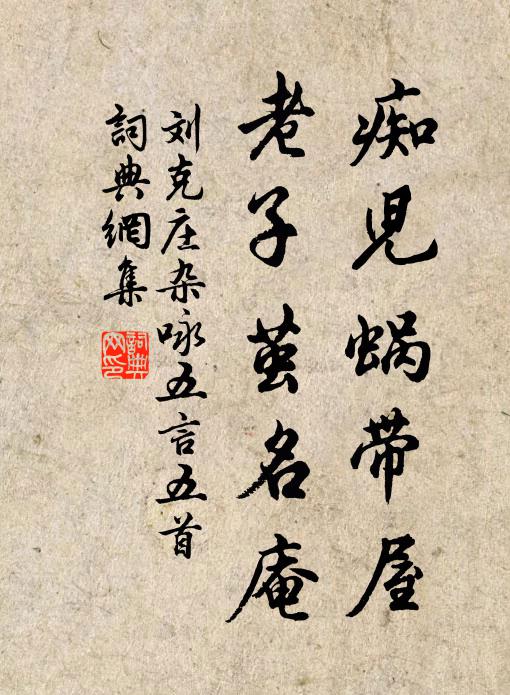 痴児蜗带屋
老子茧名庵
刘克庄杂咏五言五首
詞典網集
詞典網印